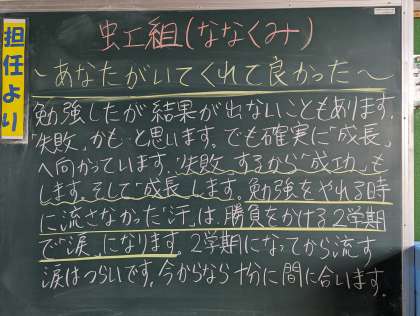 担任より
虹組(ななくみ)
～あなたがいてくれて良かった～
勉強したが結果が出ないこともあります。
"失敗"かもと思います。でも確実に"成長"
へ向かっています。"失敗"するから"成功"も
します。そして"成長"します。勉強をやれる時
に流さなかった"汗"は、勝負をかける2学期
で"涙"になります。2学期になってから流す
涙はつらいです。今からなら十分に間に合います。